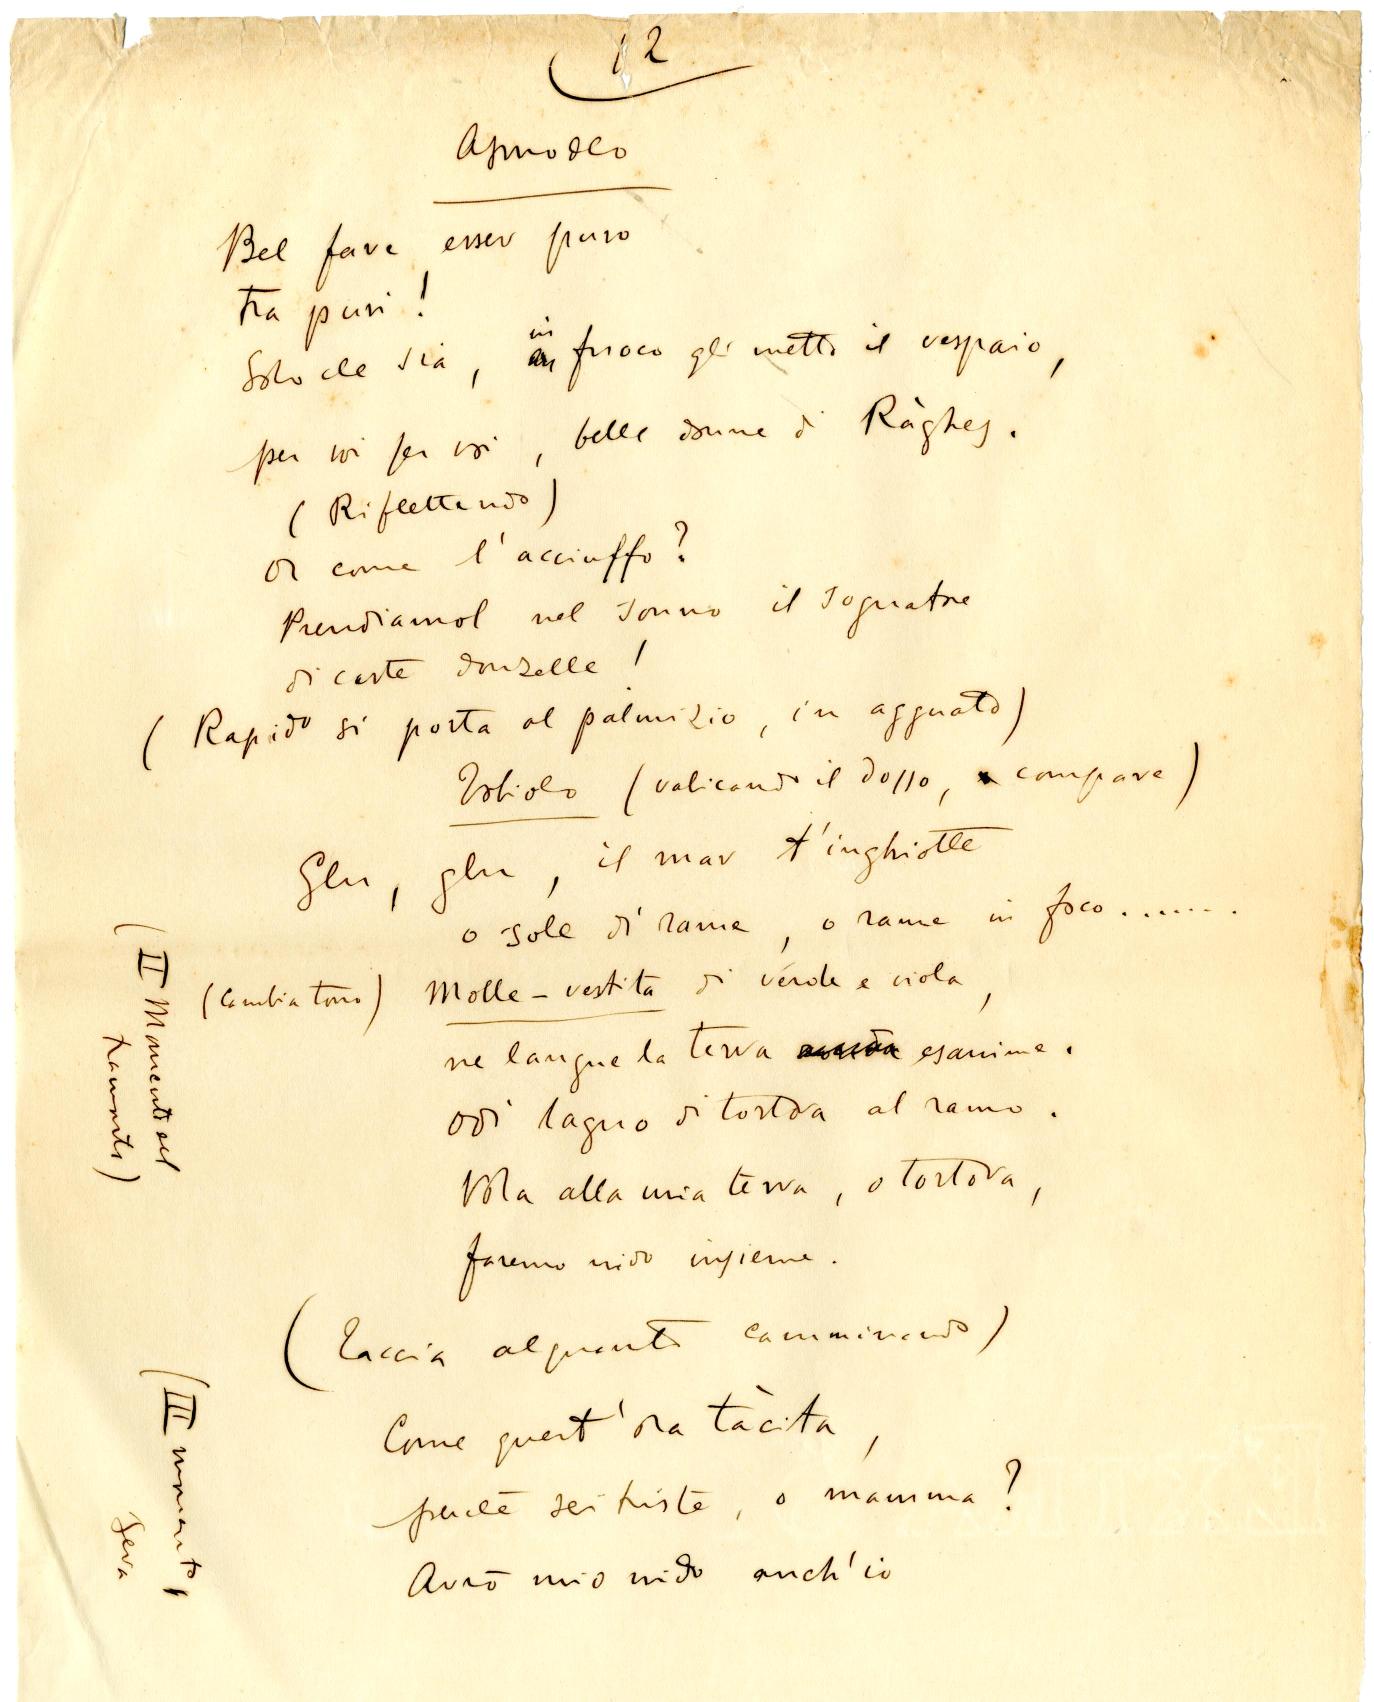 12
Asmodeo
Bel fare esser puro
tra puri!
Solo che sia, in fuoco gli metto il vespaio,
per voi per voi, belle donne di Ràghes.
(Riflettendo)
Or come l'acciuffo?
Prendiamol nel sonno il sognatore
di caste donzelle!
(Rapido si porta al palmizio, in agguato)
Tobiolo (valicando il dosso, compare)
Glu, glu, il mar t'inghiotte
o sole di rame, o rame in foco.......
(II Momento del
tramonto)
(Cambia tono) Molle-vestita di verde e viola,
ne langue la terra esanime.
Odi lagno di tortora al ramo.
Vola alla mia terra, o tortora,
faremo nido insieme.
(Taccia alquanto camminando)
(III momento,
Sera
Come quest'ora tàcita,
perchè sei triste, o mamma?
Avrò mio nido anch'io